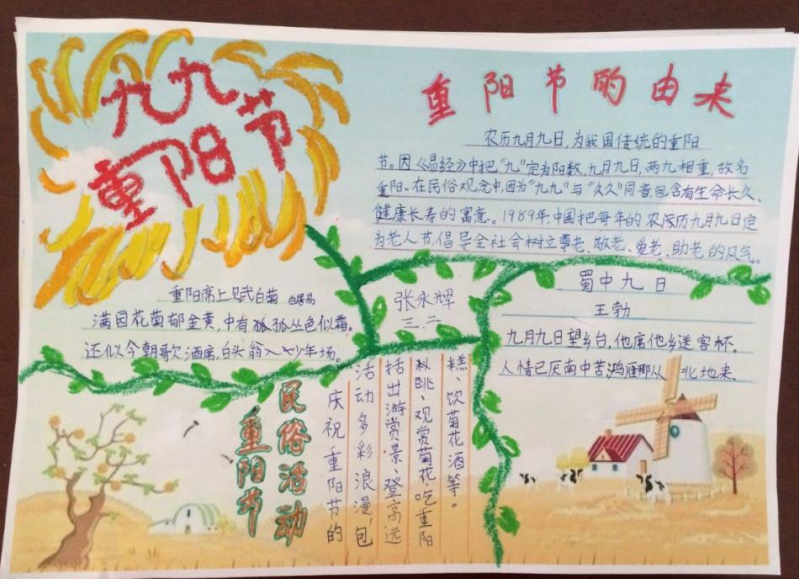 九九
重阳节
重阳节的由来
农历九月九日,为我国传统的重阳
节。因《易经》中把“九”定为阳数,九月九日,两九相重,故名
重阳、在民俗观念中,因为“九九”与“久久”同音,包含有生命长久、
健康长寿的寓意。1989年,中国把每年的农历九月九日定
为老人节,倡导全社会树立尊老、敬老、爱老、助老的风气。
重阳席上赋白菊 白居易
满园花菊郁金黄,中有孤孤丛色似霜。
还似今朝歌酒席,白头翁入少年场。
张永辉
三.二
蜀中九日
王勃
九月九日望乡台,他席他乡送客杯。
人情已厌南中苦,鸿雁那从北地来.
重阳节
民俗活动
庆祝重阳节的
活动多彩浪漫,包
括出游赏景、登高远
秋眺、观赏菊花吃重阳
糕、饮菊花酒等。